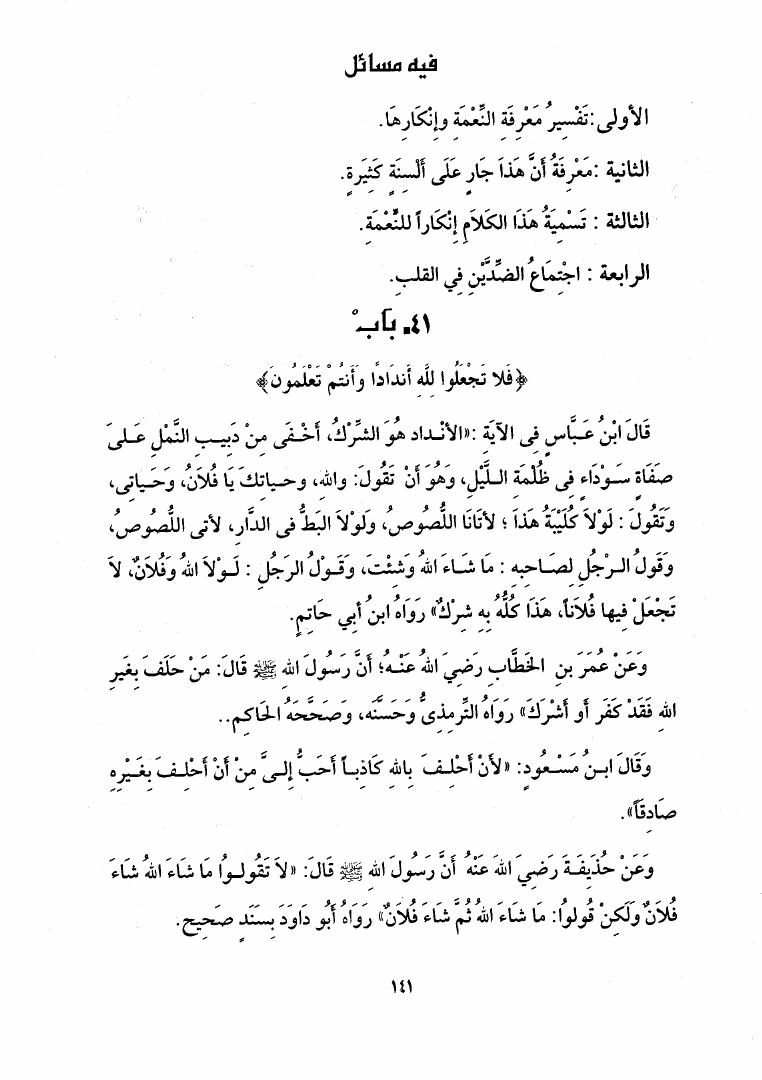 فيه مسائل
الأولى: تَفْسِيرُ مَعْرِفَةِ النِّعْمَةِ وإِنْكَارِهَا.
الثانية: مَعْرِفَةُ أنَّ هَذَا جَارٍ عَلَى أَلْسِنَةٍ كَثِيرَةٍ.
الثالثة : تَسْمِيَةُ هَذَا الكَلَامِ إِنْكَاراً للنِّعْمَةِ.
الرابعة : اجْتِمَاعُ الضِّدَّيْنِ فِي القلبِ.
٤١. بابٌ
﴿فَلا تَجْعَلُوا لِلَّهِ أَندَادًا وَأَنتُمْ تَعْلَمُونَ﴾
قَالَ ابْنُ عَبَّاسٍ فِى الآيَةِ :«الأَنْداد هُوَ الشِّرْكُ، أَخْفَى مِنْ دَبِيبِ النَّمْلِ عَلَىَ
صَفَاةٍ سَوْدَاءٍ فِى ظُلْمَةِ اللَّيْلِ، وَهُوَ أَنْ تَقُولَ: واللهِ، وحياتكَ يَا فُلَانُ، وَحَيَاتِى،
وَتَقُولَ : لَوْلاَ كُلَيْبَةُ هَذَا ؛ لأتَانَا اللُّصُوصُ، وَلَوْلاَ البَطُّ فى الدَّارِ، لأتى اللُّصُوصُ،
وَقَولُ الرَّجُلِ لصَاحبِهِ : مَا شَاءَ اللهُ وَشِئْتَ، وَقَوْلُ الرَجُلِ : لَوْلاَ اللهُ وَفُلَانٌ، لاَ
تَجْعَلْ فِيها فُلَاناً، هَذَا كُلُّهُ بِهِ شِرْكٌ» رَوَاهُ ابنُ أبي حَاتِمٍ.
وَعَنْ عُمَرَ بنِ الخَطَّابِ رَضِيَ اللهُ عَنْهُ؛ أنَّ رَسُولَ اللهِ ﷺ قَالَ: مَنْ حَلَفَ بِغَيرِ
اللهِ فَقَدْ كَفَرَ أو أشْرَكَ» رَوَاهُ التِّرمِذِىُّ وَحَسَّنَه، وَصَحَّحَهُ الحَاكِم..
وَقَالَ ابنُ مَسْعُودٍ: «لأنْ أَحْلِفَ بِاللهِ كَاذِباً أحَبُّ إِلىَّ مِنْ أَنْ أَحْلِفَ بِغَيْرِهِ
صَادِقاً».
وَعَنْ حُذَيفَةَ رَضِيَ اللهُ عَنْهُ أنَّ رَسُولَ اللهِ ﷺ قَالَ: «لاَ تَقُولُواُ مَا شَاءَ اللهُ شَاءَ
فُلَانٌ وَلَكِنْ قُولُواُ: مَا شَاءَ اللهُ ثُمَّ شَاءَ فُلَانٌ» رَوَاهُ أَبُو دَاوُدَ بِسَنَدٍ صَحِيحٍ.
١٤١